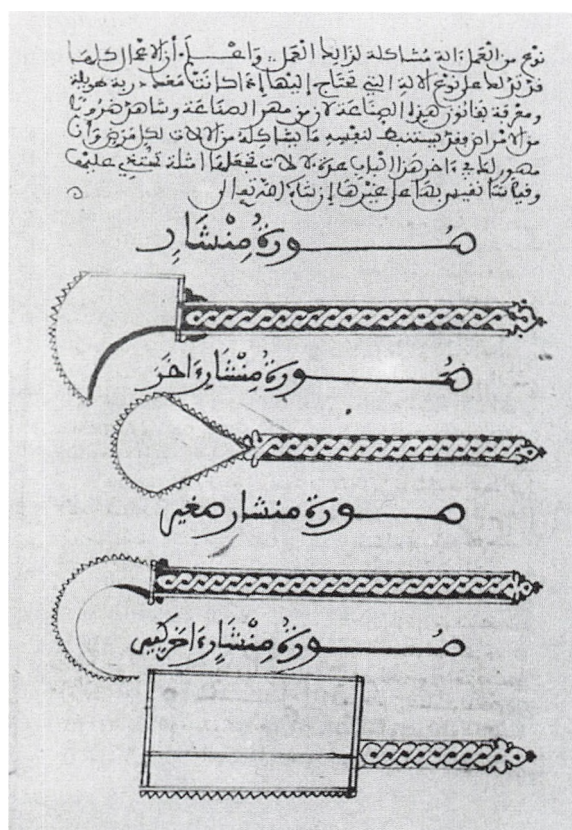 نوع من العمل ءالة مُشاكلة لذلك العمل واعْلَم أن الاعمال كلها
قد تدلك على نوع الالة التي تحتاج إليها إنما إذا كانت معك دربة طويلة
ومعرفة بقانون هذه الصناعة لان من مهر الصناعة وشاهد ضروبًا
من الامراض فقد يستنبط لنفسه ما يشاكله من الالات لكل مرض وأنا
مصور لك في ءاخر هذا الباب عدة ءالات تجعلها امثلة تحتذي عليها
وقياسا تقيس بها على غيرها إن شاء الله تعالى
صُورَةُ مِنْشَارٍ
صُورَةُ مِنْشَارٍ ءاخَرَ
صورة منشار صغير
صُورَةُ مِنْشَارٍ ءاخَر كبير